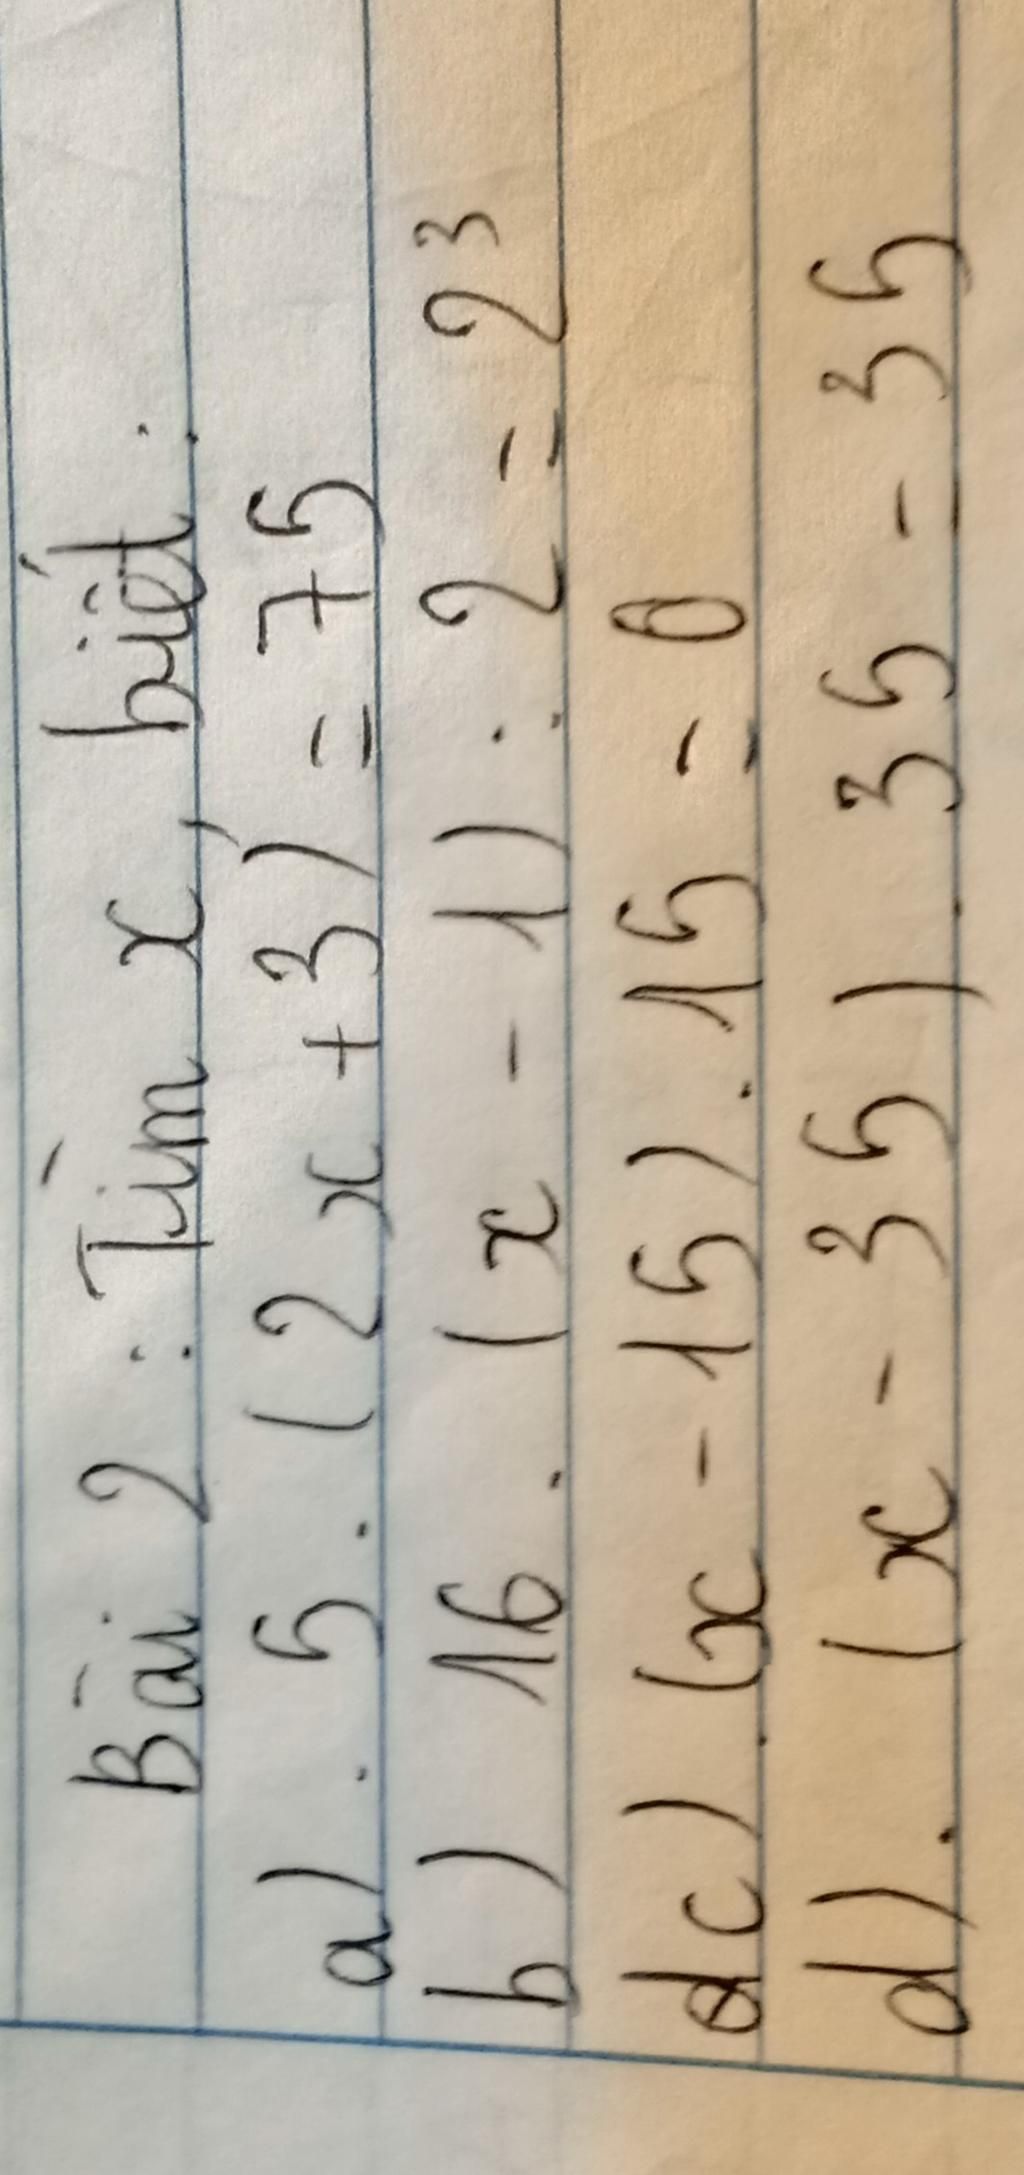 Bài 2 : Tìm x, biết :
a). 5 . (2x + 3) = 75
b) 16 . (x - 1) : 2 = 2³
c) (x - 15) . 15 = 0
d). (x - 35) . 35 = 35